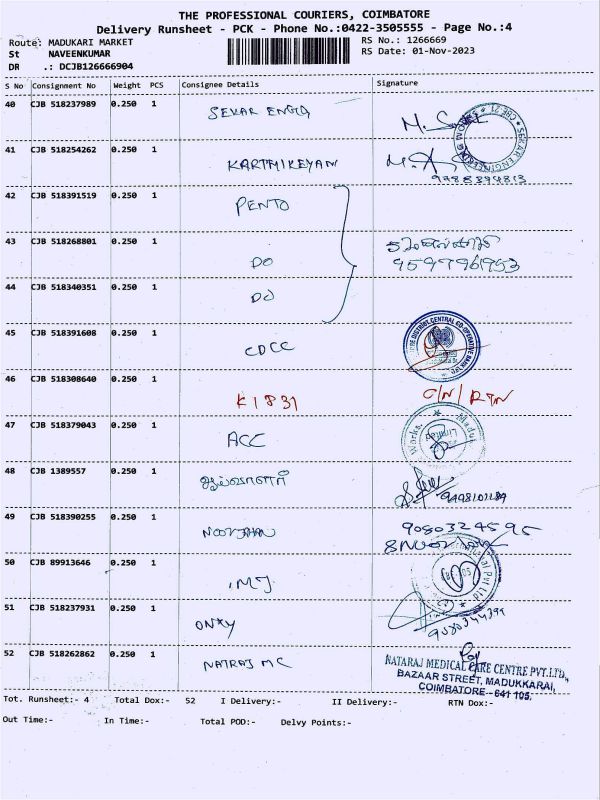 THE PROFESSIONAL COURIERS, COIMBATORE
Delivery Runsheet - PCK - Phone No.:0422-3505555 - Page No.:4
Route: MADUKARI MARKET RS No.: 1266669
St NAVEENKUMAR RS Date: 01-Nov-2023
DR .: DCJB126666904
S No Consignment No Weight PCS Consignee Details Signature
40 CJB 518237989 0.250 1 SEKAR ENGG
41 CJB 518254262 0.250 1 KARTHIKEYAN
9488394813
42 CJB 518391519 0.250 1 PENTO
43 CJB 518268801 0.250 1 DO
9597796953
44 CJB 518340351 0.250 1 DO
45 CJB 518391608 0.250 1 CDCC
46 CJB 518308640 0.250 1 K1831 C/N/RTN
47 CJB 518379043 0.250 1 ACC
48 CJB 1389557 0.250 1
49 CJB 518390255 0.250 1 NOORJAHN 9080324595
50 CJB 89913646 0.250 1 IMJ
51 CJB 518237931 0.250 1 ONXY
9080344399
52 CJB 518262862 0.250 1 NATRAJ MC NATARAJ MEDICAL CARE CENTRE PVT.LTD.,
BAZAAR STREET, MADUKKARAI,
COIMBATORE - 641 105.
Tot. Runsheet:- 4 Total Dox:- 52 I Delivery:- II Delivery:- RTN Dox:-
Out Time:- In Time:- Total POD:- Delvy Points:-